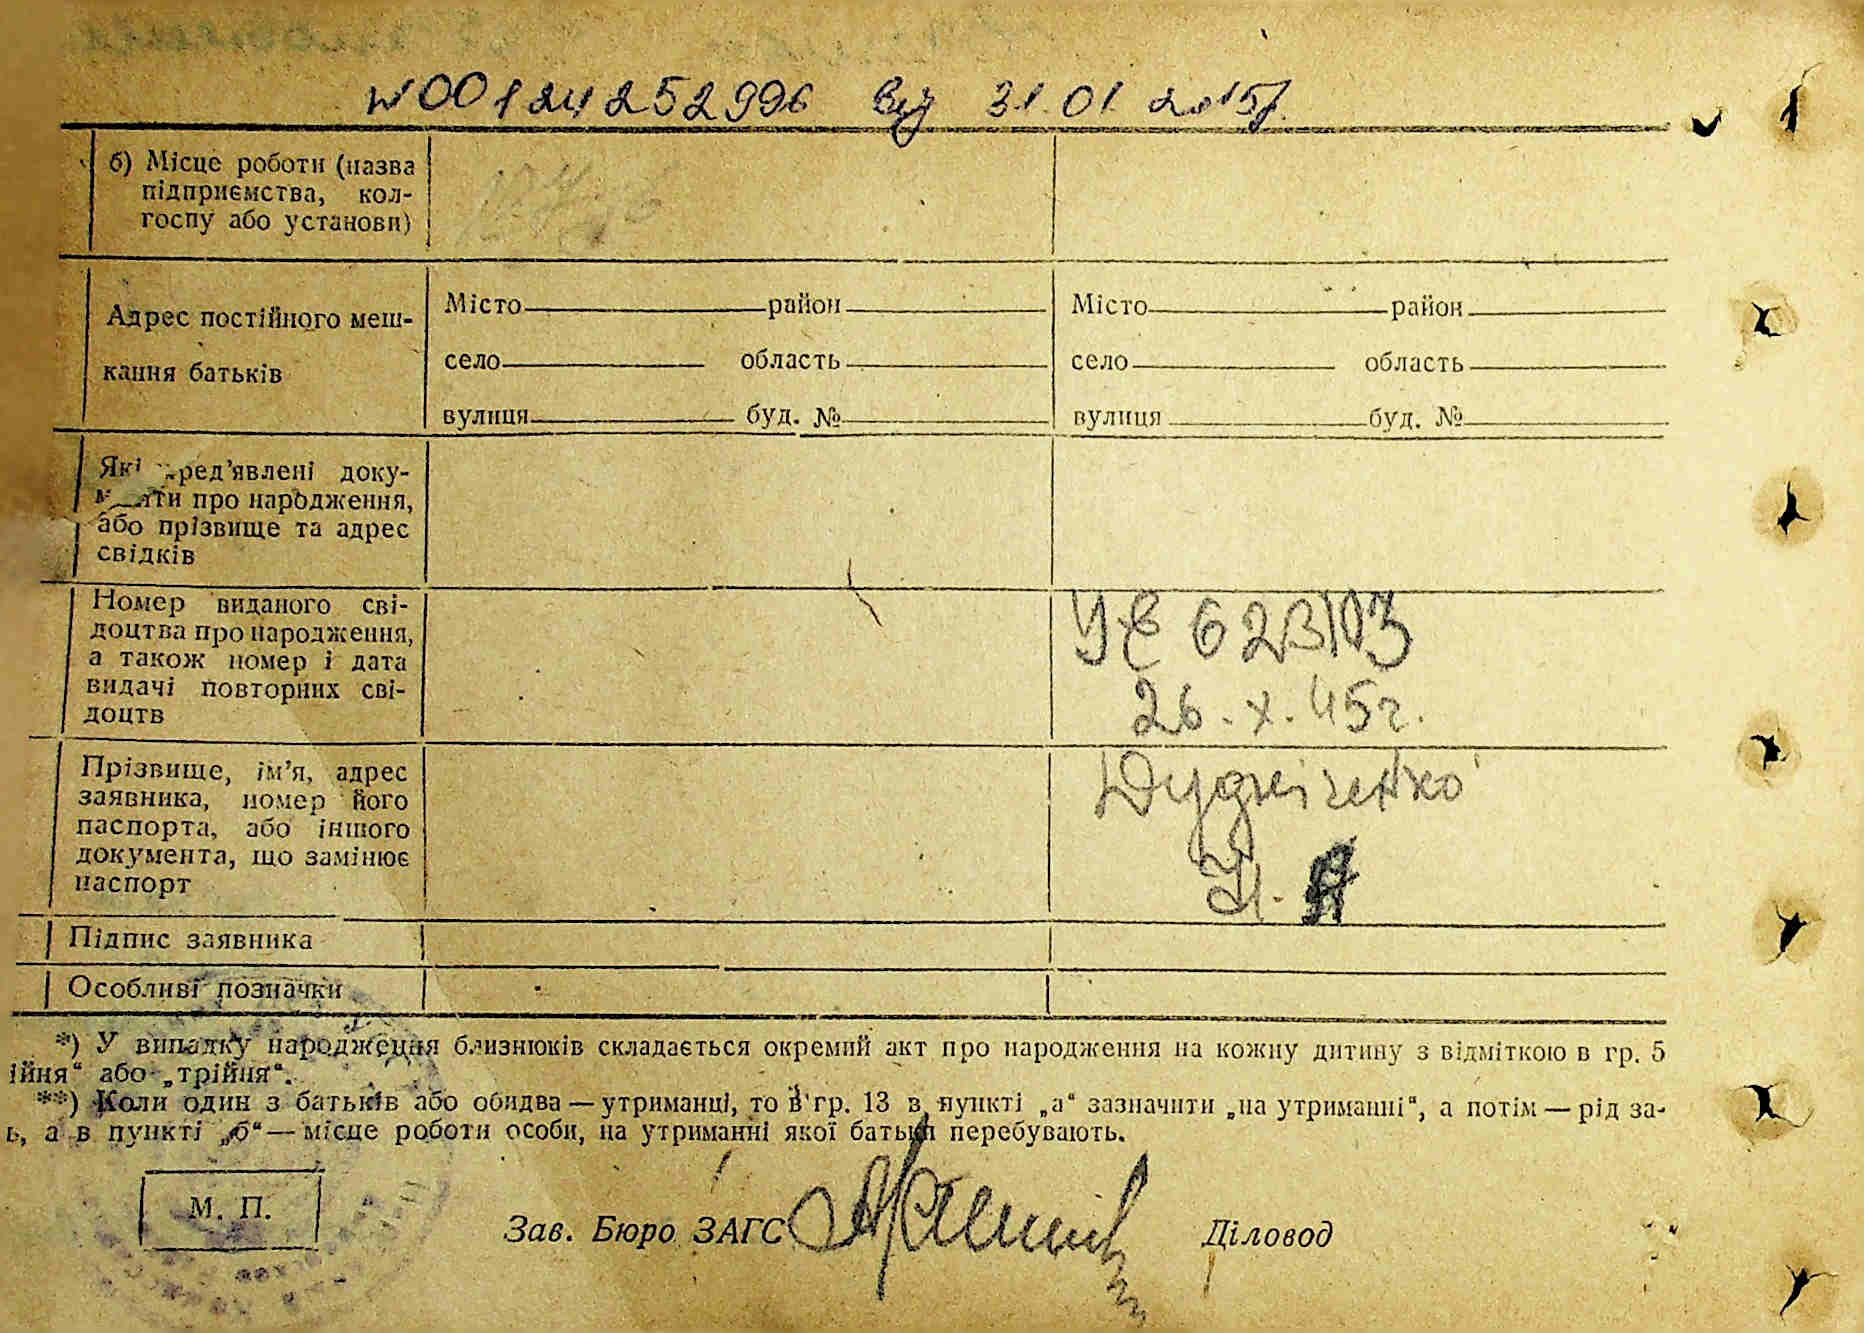 № 00124252996 від 31.01.2015р.
б) Місце роботи (назва
підприємства, кол-
госпу або установи)
Адрес постійного меш-
кання батьків
Місто район
село область
вулиця буд. №
Місто район
село область
вулиця буд. №
Які пред’явлені доку-
менти про народження,
або прізвище та адрес
свідків
Номер виданого сві-
доцтва про народження,
а також номер і дата
видачі повторних сві-
доцтв
УЄ 623103
26.X.45г.
Прізвище, ім’я, адрес
заявника, номер його
паспорта, або іншого
документа, що замінює
паспорт
Дудніченко
Підпис заявника
Особливі позначки
*) У випадку народження близнюків складається окремий акт про народження на кожну дитину з відміткою в гр. 5
ійня“ або „трійня“.
**) Коли один з батьків або обидва — утриманці, то в гр. 13 в пункті „а“ зазначити „на утриманні“, а потім — рід за-
ь, а в пункті „б“ — місце роботи особи, на утриманні якої батьки перебувають.
М. П.
Зав. Бюро ЗАГС
Діловод